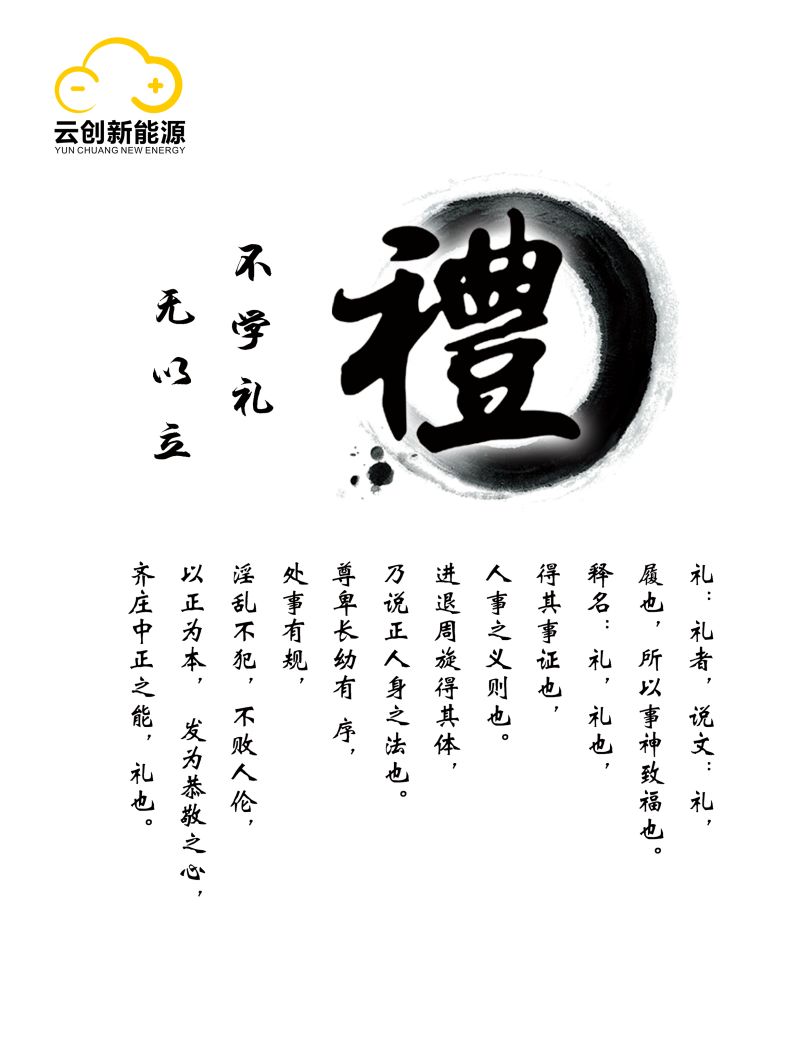 云创新能源
YUN CHUANG NEW ENERGY
禮
不学礼
无以立
礼：礼者，说文：礼，
履也，所以事神致福也。
释名：礼，礼也，
得其事证也，
人事之义则也。
进退周旋得其体，
乃说正人身之法也。
尊卑长幼有 序，
处事有规，
淫乱不犯，不败人伦，
以正为本， 发为恭敬之心，
齐庄中正之能，礼也。